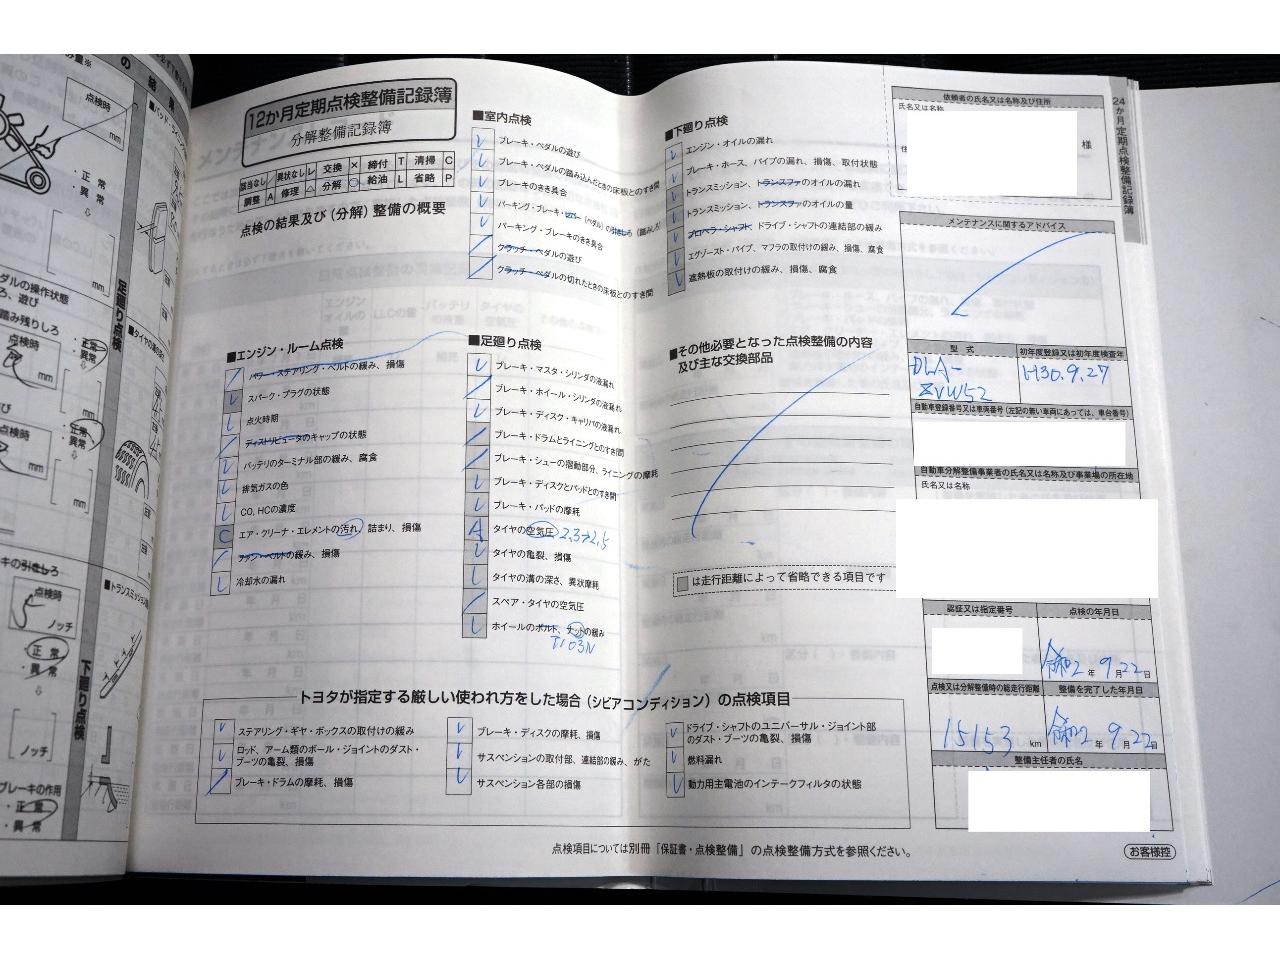 12か月定期点検整備記録簿
分解整備記録簿
該当なし ／ 異状なし レ 交換 × 締付 T 清掃 C
調整 A 修理 △ 分解 ○ 給油 L 省略 P
点検の結果及び（分解）整備の概要
■エンジン・ルーム点検
パワー・ステアリング・ベルトの緩み、損傷
スパーク・プラグの状態
点火時期
ディストリビュータのキャップの状態
バッテリのターミナル部の緩み、腐食
排気ガスの色
CO, HCの濃度
C エア・クリーナ・エレメントの汚れ、詰まり、損傷
ファン・ベルトの緩み、損傷
冷却水の漏れ
■室内点検
ブレーキ・ペダルの遊び
ブレーキ・ペダルの踏み込んだときの床板とのすき間
ブレーキのきき具合
パーキング・ブレーキ・レバー（ペダル）の引きしろ（踏みしろ）
パーキング・ブレーキのきき具合
クラッチ・ペダルの遊び
クラッチ・ペダルの切れたときの床板とのすき間
■足廻り点検
ブレーキ・マスタ・シリンダの液漏れ
ブレーキ・ホイール・シリンダの液漏れ
ブレーキ・ディスク・キャリパの液漏れ
ブレーキ・ドラムとライニングとのすき間
ブレーキ・シューの摺動部分、ライニングの摩耗
ブレーキ・ディスクとパッドとのすき間
ブレーキ・パッドの摩耗
A タイヤの空気圧 2.3→2.5
タイヤの亀裂、損傷
タイヤの溝の深さ、異状摩耗
スペア・タイヤの空気圧
ホイールのボルト、ナットの緩み
T103N
■下廻り点検
エンジン・オイルの漏れ
ブレーキ・ホース、パイプの漏れ、損傷、取付状態
トランスミッション、トランスファのオイルの漏れ
トランスミッション、トランスファのオイルの量
プロペラ・シャフト、ドライブ・シャフトの連結部の緩み
エグゾースト・パイプ、マフラの取付けの緩み、損傷、腐食
遮熱板の取付けの緩み、損傷、腐食
■その他必要となった点検整備の内容
及び主な交換部品
は走行距離によって省略できる項目です
依頼者の氏名又は名称及び住所
氏名又は名称
様
メンテナンスに関するアドバイス
型 式 初年度登録又は初年度検査年
DLA-
ZVW52
H30.9.27
自動車登録番号又は車両番号（左記の無い車両にあっては、車台番号）
自動車分解整備事業者の氏名又は名称及び事業場の所在地
氏名又は名称
認証又は指定番号 点検の年月日
令和2年9月22日
点検又は分解整備時の総走行距離 整備を完了した年月日
15153 km 令和2年9月22日
整備主任者の氏名
トヨタが指定する厳しい使われ方をした場合（シビアコンディション）の点検項目
ステアリング・ギヤ・ボックスの取付けの緩み
ロッド、アーム類のボール・ジョイントのダスト・
ブーツの亀裂、損傷
ブレーキ・ドラムの摩耗、損傷
ブレーキ・ディスクの摩耗、損傷
サスペンションの取付部、連結部の緩み、がた
サスペンション各部の損傷
ドライブ・シャフトのユニバーサル・ジョイント部
のダスト・ブーツの亀裂、損傷
燃料漏れ
動力用主電池のインテークフィルタの状態
点検項目については別冊「保証書・点検整備」の点検整備方式を参照ください。
お客様控
24か月定期点検整備記録簿
の 結 果
点検時
mm
・正 常
・異 常
ダルの操作状態
ろ、遊び
踏み残りしろ
点検時
mm
・正常
・異常
点検時
mm
・正常
・異常
キの引きしろ
点検時
ノッチ
正 常
・異 常
ノッチ
ブレーキの作用
・正 常
・異 常
足廻り点検
下廻り点検
■トランスミッション